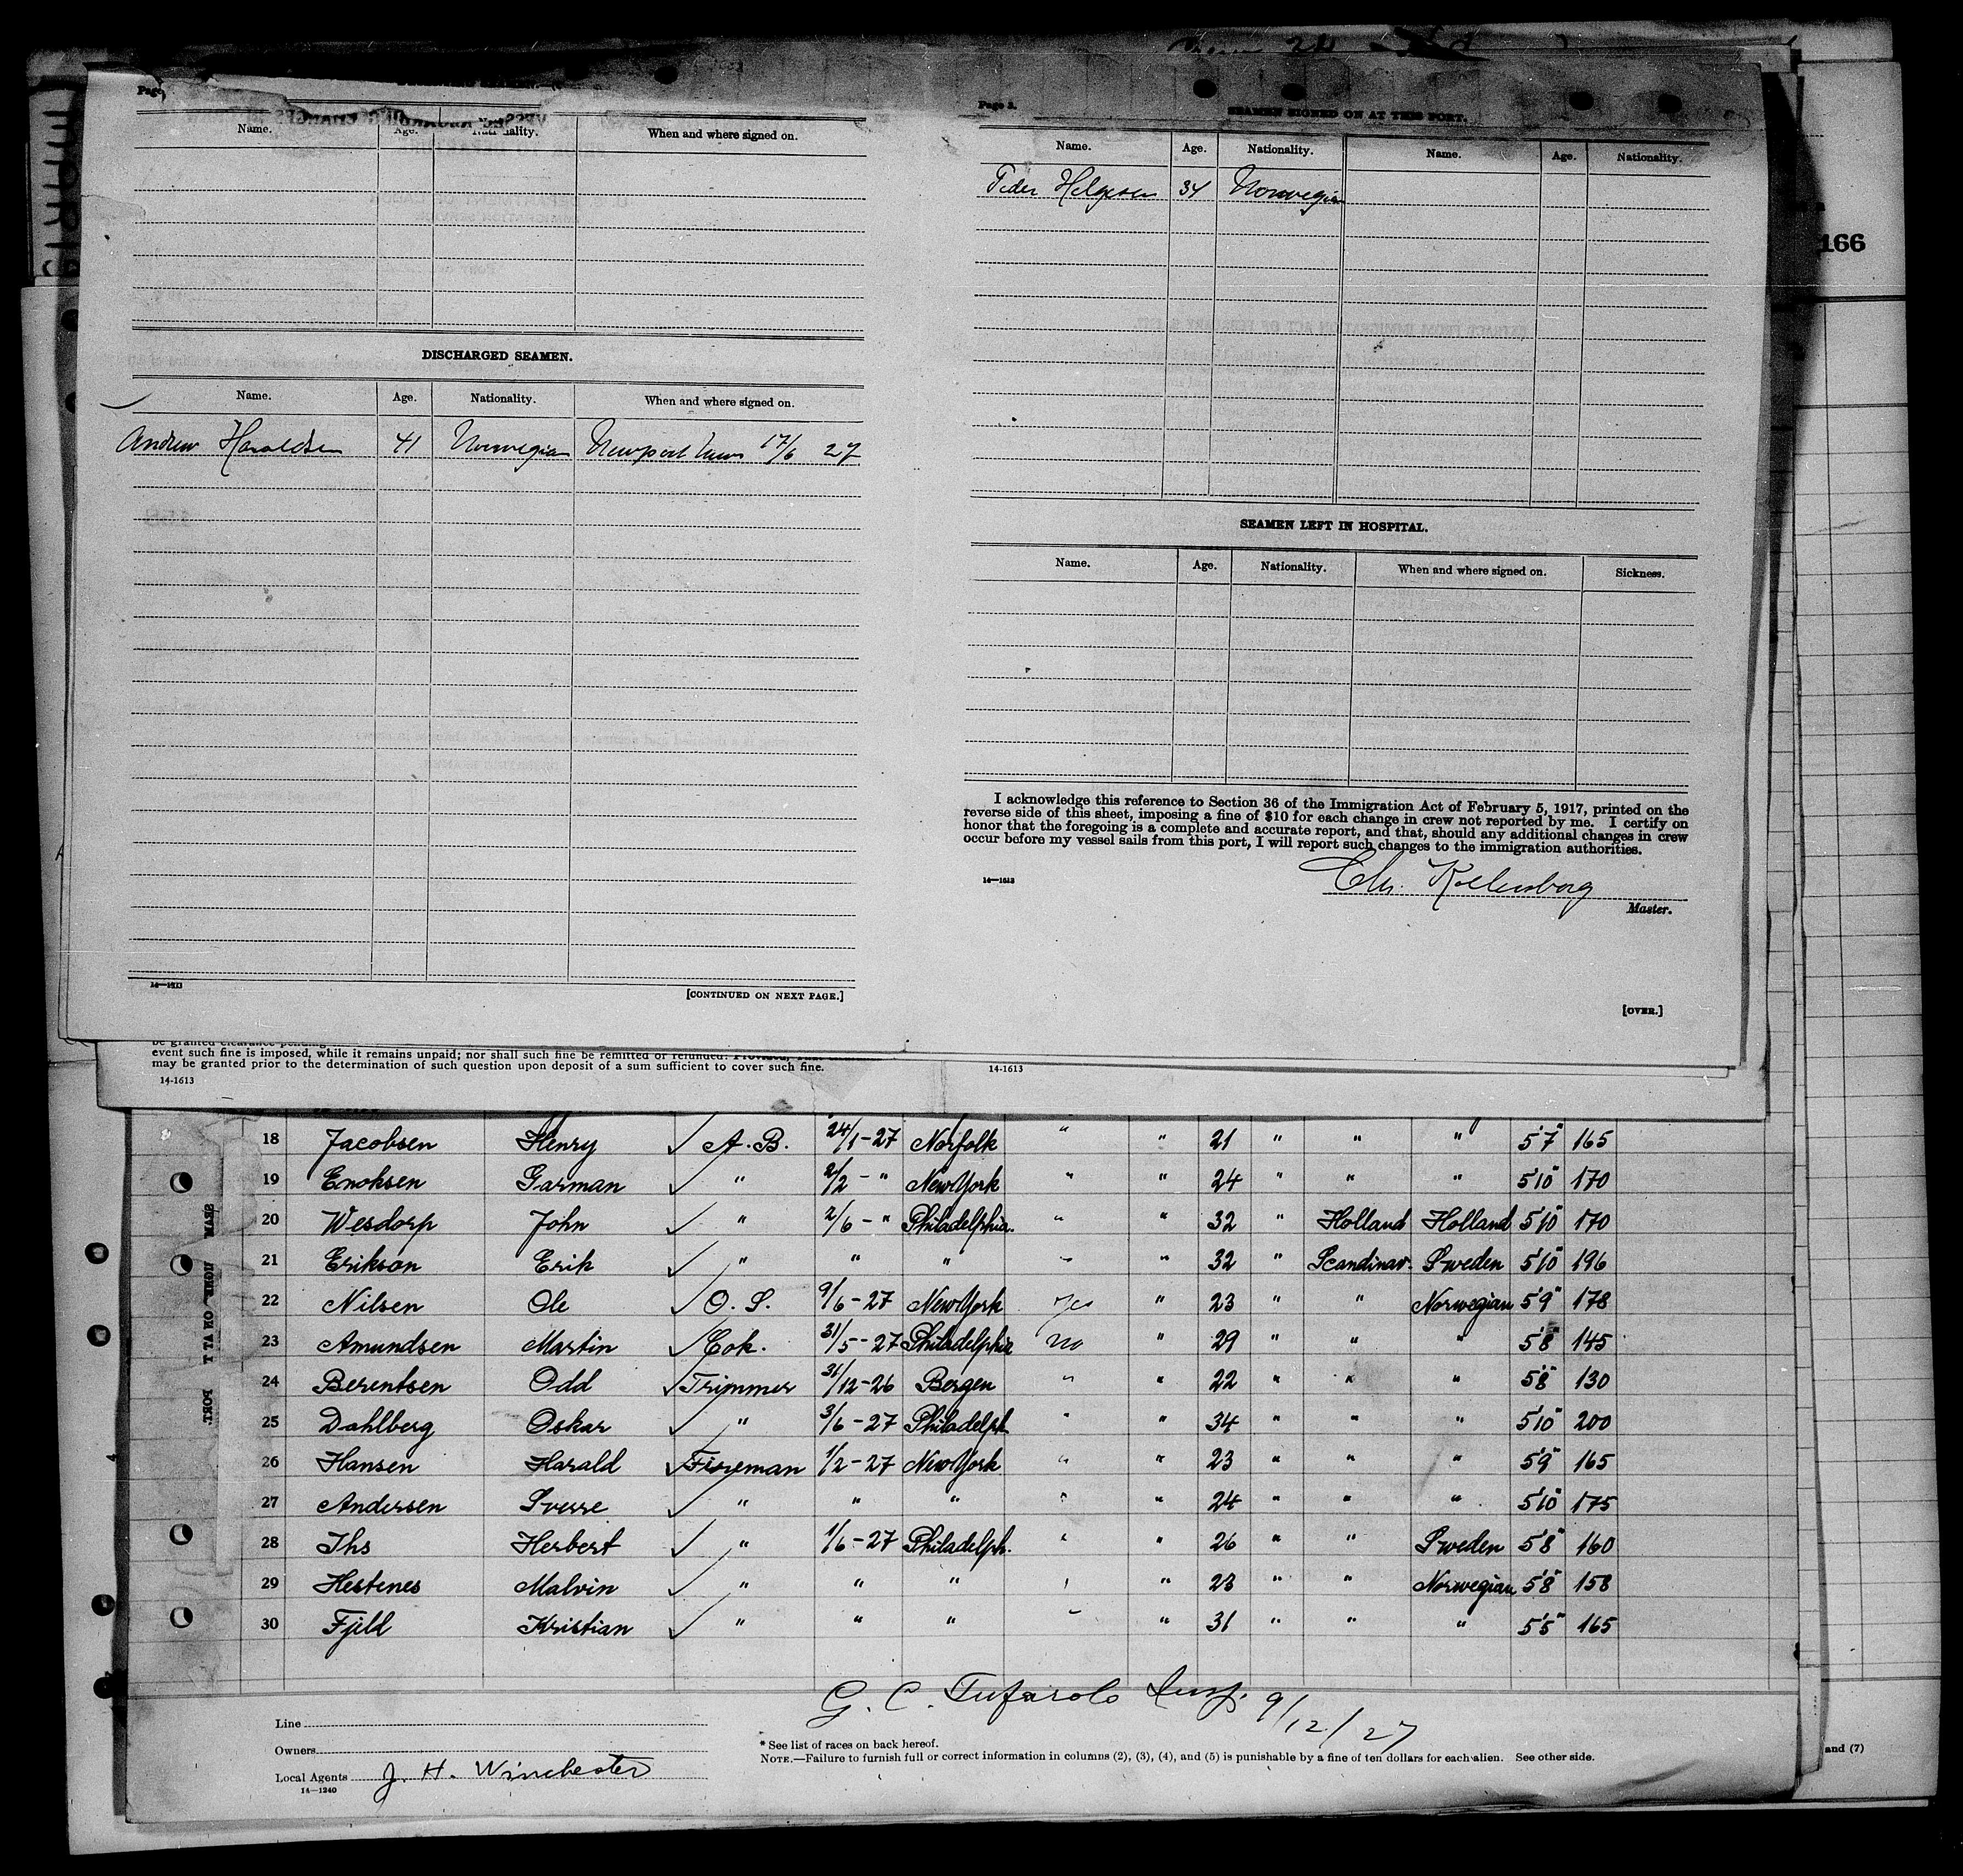 Page
Name. Age. Nationality. When and where signed on.
DISCHARGED SEAMEN.
Name. Age. Nationality. When and where signed on.
Andrew Haraldsen 41 Norwegian Newport News 17/6 27
14—1613
[CONTINUED ON NEXT PAGE.]
Page 3.
SEAMEN SIGNED ON AT THIS PORT.
Name. Age. Nationality. Name. Age. Nationality.
Peder Helgesen 34 Norwegian
SEAMEN LEFT IN HOSPITAL.
Name. Age. Nationality. When and where signed on. Sickness.
I acknowledge this reference to Section 36 of the Immigration Act of February 5, 1917, printed on the
reverse side of this sheet, imposing a fine of $10 for each change in crew not reported by me. I certify on
honor that the foregoing is a complete and accurate report, and that, should any additional changes in crew
occur before my vessel sails from this port, I will report such changes to the immigration authorities.
14—1613
Chr. Kollensborg
Master.
[OVER.]
166
be granted clearance pending
event such fine is imposed, while it remains unpaid; nor shall such fine be remitted or refunded: Provided, That
may be granted prior to the determination of such question upon deposit of a sum sufficient to cover such fine.
14-1613 14-1613
18 Jacobsen Henry ✓ A. B. 24/1-27 Norfolk " " 21 " " " 5'7" 165
19 Enoksen Garman ✓ " 2/2 - " New York " " 24 " " " 5'10" 170
20 Wesdorp John ✓ " 2/6 - " Philadelphia. " " 32 " Holland Holland 5'10" 170
21 Erikson Erik ✓ " " " " " 32 " Scandinav. Sweden 5'10" 196
22 Nilsen Ole ✓ O. S. 9/6-27 New York Yes " 23 " " Norwegian 5'9" 178
23 Amundsen Martin ✓ Cok. 31/5-27 Philadelphia No " 29 " " " 5'8" 145
24 Berentsen Odd ✓ Trimmer 31/12-26 Bergen " " 22 " " " 5'8" 130
25 Dahlberg Oskar ✓ " 3/6-27 Philadelph. " " 34 " " " 5'10" 200
26 Hansen Harald ✓ Fireman 1/2-27 New York " " 23 " " " 5'9" 165
27 Andersen Sverre ✓ " " " " " 24 " " " 5'10" 175
28 Ihs Herbert ✓ " 1/6-27 Philadelph. " " 26 " " Sweden 5'8" 160
29 Hestenes Malvin ✓ " " " " " 23 " " Norwegian 5'8" 158
30 Fjeld Kristian ✓ " " " " " 31 " " " 5'5" 165
G. C. Tufarolo Insp. 9/12/27
Line
Owners
Local Agents J. H. Winchester
14—1240
* See list of races on back hereof.
NOTE.—Failure to furnish full or correct information in columns (2), (3), (4), and (5) is punishable by a fine of ten dollars for each alien. See other side.
and (7)